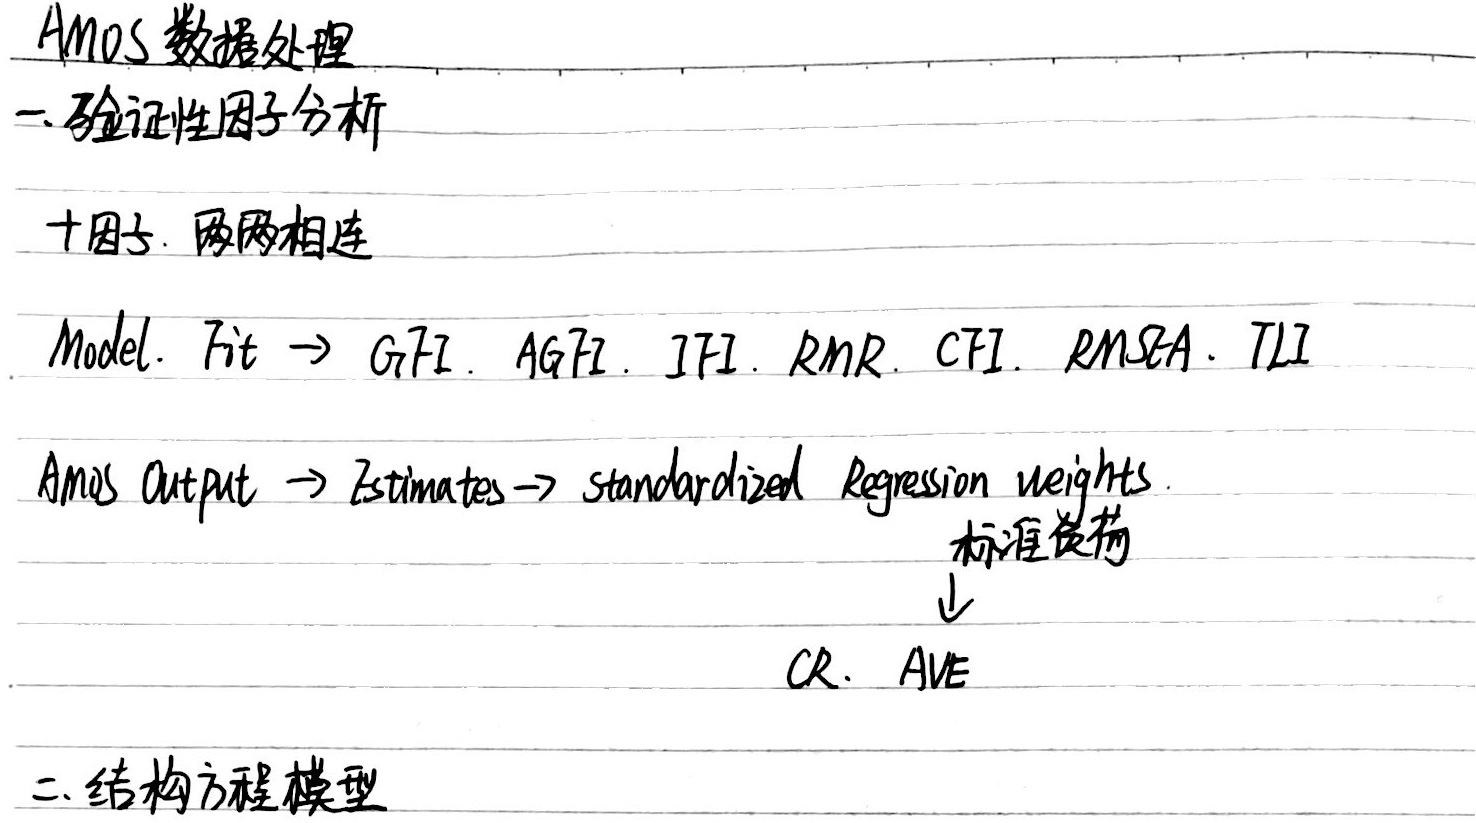 AMOS 数据处理
一. 验证性因子分析
十因子. 两两相连
Model. Fit → GFI. AGFI. IFI. RMR. CFI. RMSEA. TLI
Amos Output → Estimates → standardized Regression weights.
标准负荷
↓
CR. AVE
二. 结构方程模型